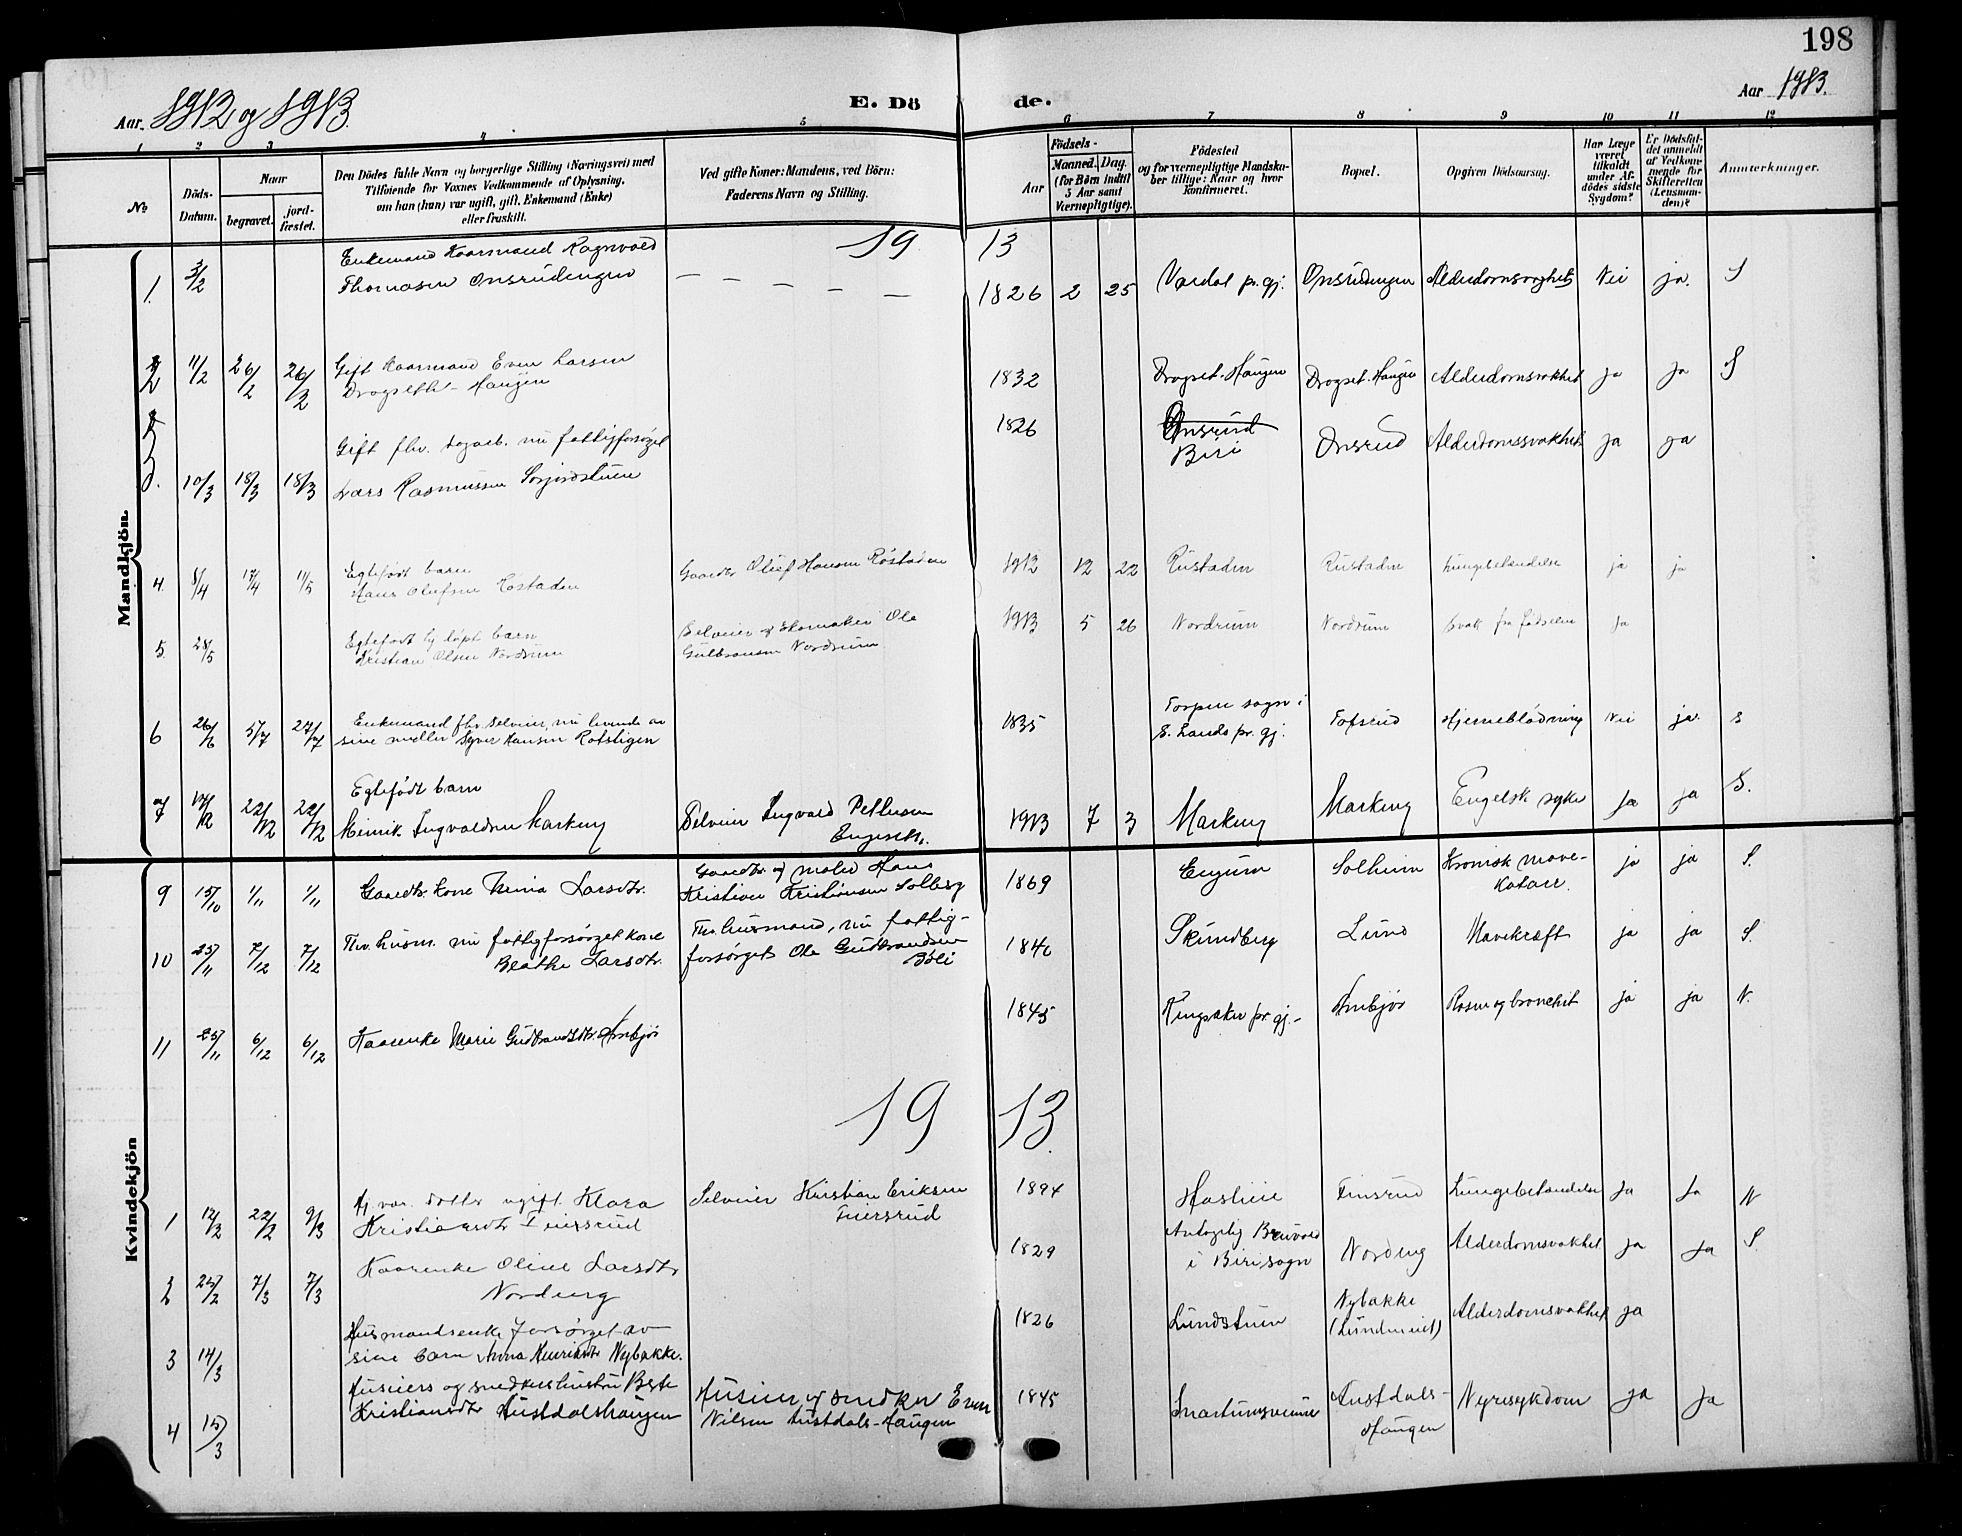 198
Aar. 1912 og 1913.
E. Dö de.
Aar 1913.
1 2 3 4 5 6 7 8 9 10 11 12
No
Döds-
Datum.
Naar
begravet.
jord-
fæstet.
Den Dödes fulde Navn og borgerlige Stilling (Næringsvei) med
Tilföiende for Voxnes Vedkommende af Oplysning,
om han (hun) var ugift, gift, Enkemand (Enke)
eller fraskilt.
Ved gifte Koner: Mandens, ved Börn:
Faderens Navn og Stilling.
Aar
Födsels-
Maaned. Dag.
(for Börn indtil
3 Aar samt
Værnepligtige).
Födested
og for værnepligtige Mandska-
ber tillige: Naar og hvor
konfirmeret.
Bopæl.
Opgiven Dödsaarsag.
Har Læge
været
tilkaldt
under Af-
dödes sidste
Sygdom?
Er Dödsfal-
det anmeldt
af Vedkom-
mende for
Skifteretten
(Lensman-
den)?
Anmerkninger.
Mandkjön.
19 13
1. 3/2 Enkemand Kaarmand Ragnvald
Thomasen Onsrudengen — — — — — 1826 2 25 Vardal pr.gj. Onsrudengen Alderdomssvaghet Nei ja. S
2 11/2 26/2 26/2 Gift Kaarmand Even Larsen
Drogseth-Haugen 1832 Drogset-Haugen Drogset-Haugen Alderdomsvakhet ja ja S
3. 10/3 18/3 18/3 Gift fhv. dagarb. nu fattigforsørget
Lars Rasmussen 1826 Onsrud
Biri Onsrud Alderdomssvakhet ja ja
4. 8/4 17/4 11/5 Egtefødt barn
Hans Olufsen Røstaden Gaardbr. Oluf Hansen Røstaden 1912 12 22 Rustaden Rustaden Lungebetændelse ja ja
5. 28/5 Egtefødt hj. døpt barn
Kristian Olsen Nordrum Selveier og skomaker Ole
Gulbransen Nordrum 1913 5 26 Nordrum Nordrum Svak fra fødselen ja
6 26/6 5/7 27/7 Enkemand fhv. selveier, nu levende av
sine midler Syver Hansen 1835 Torpen sogn i
S. Lands pr. gj. Tofsrud Hjerneblødning Nei ja. S
7 17/12 22/12 22/12 Egtefødt barn
Henrik Ingvaldsen Markeng Selveier Ingvald Pettersen
1913 7 3 Markeng Markeng Engelsk syke Ja ja S.
Kvindekjön
9 15/10 1/11 1/11 Gaardbr. kone Larsdtr. Gaardbr. og maler Hans
Kristian Kristiansen Solberg 1869 Engum Solheim Kronisk mave-
katarr. ja ja S.
10 25/11 7/12 7/12 Fhv. husm. nu fattigforsørget kone
Beathe Larsdtr. Fhv. husmand, nu fattig-
forsørget Ole Gudbrandsen
1846 Skundberg Lund Mavekræft ja ja S.
11 25/11 6/12 6/12 Kaarenke Marie Gudbrandsdtr. Arnbjør 1845 Ringsaker pr. gj. Arnbjør Rosen og bronchit ja ja N.
19 13.
1 12/2 22/2 9/3 Hj. vær. datter ugift Klara
Kristiansdtr. Finsrud Selveier Kristian Eriksen
Finsrud 1894 Haslien Finsrud Lungebetændelse Ja Ja N
2 25/2 7/3 7/3 Kaarenke Oline Larsdtr.
Nordeng 1829 Antagelig
i Biri sogn Nordeng Alderdomsvakhet ja ja S.
3 14/3 Husmandsenke forsørget av
sine barn Anna Henriksdtr. Nybakke. 1826 Lundstuen Nybakke
Alderdomsvakhet ja
4 15/3 Husiers og snedkers hustru
Kristiansdtr. Austdalshaugen Husier og snedker Even
Nilsen Austdals-Haugen 1845 Austdals-
Haugen Nyresykdom ja ja